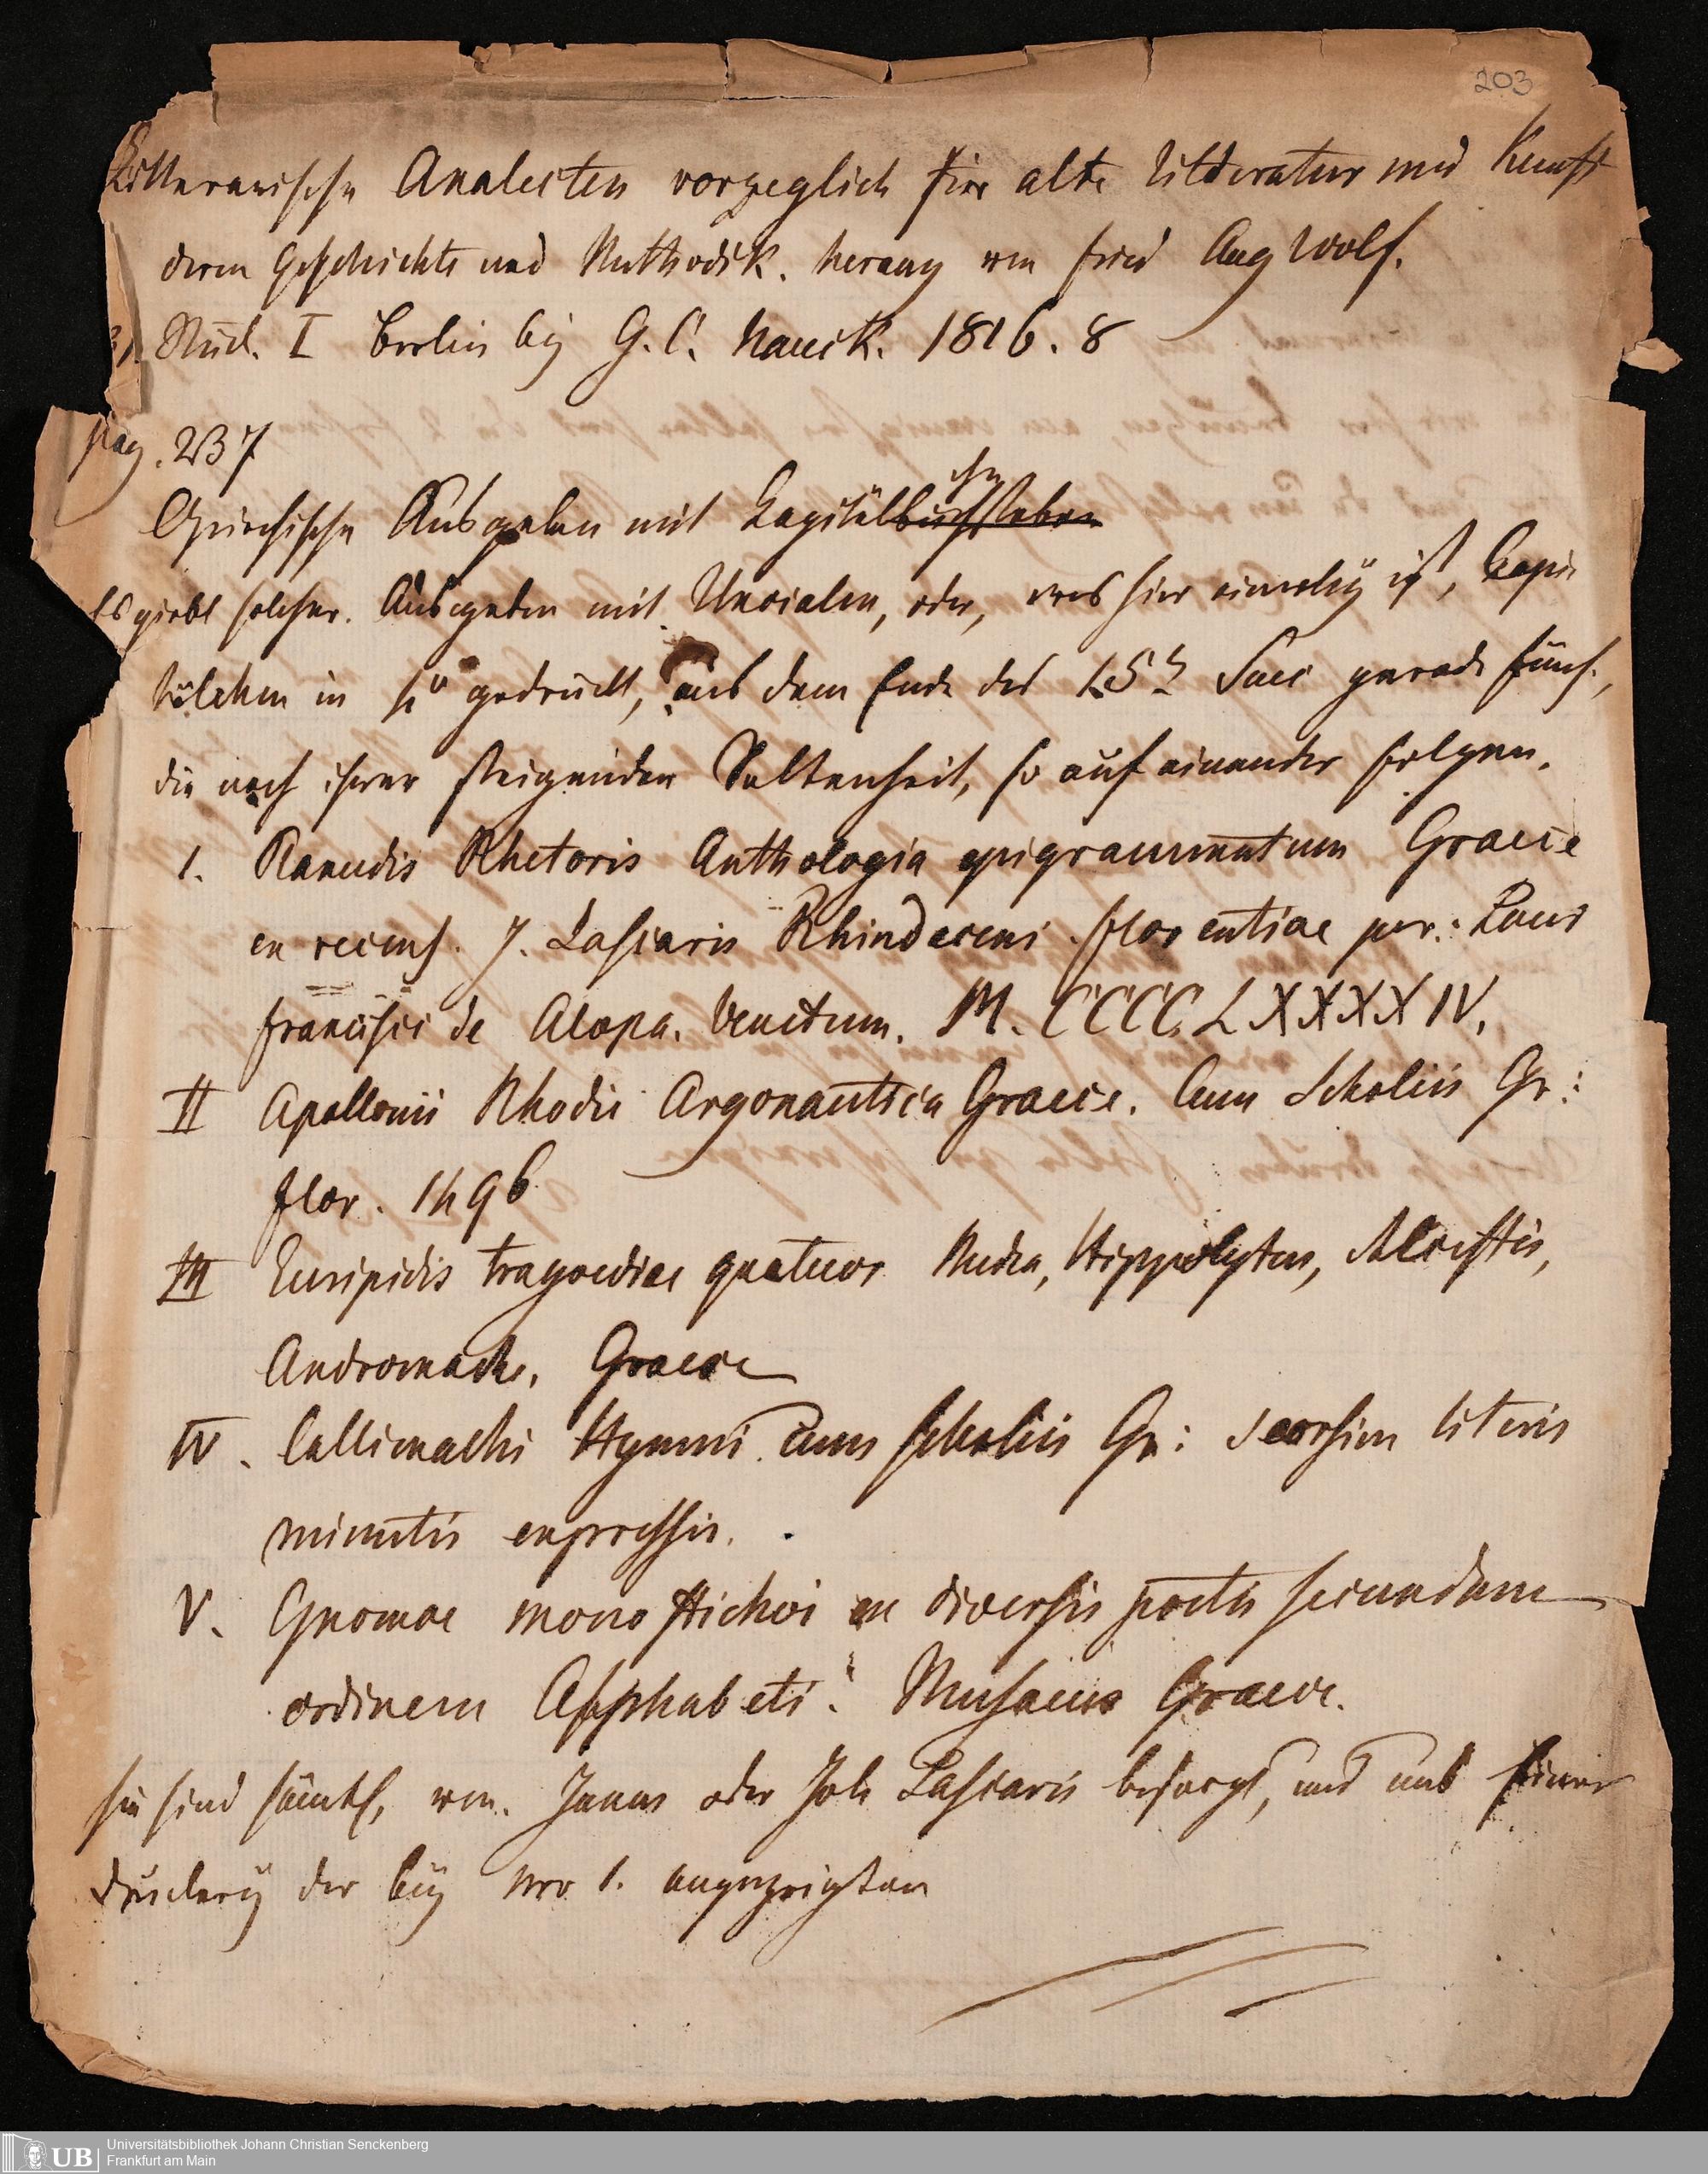 203
Litterarische Analecten vorzeglich für alte Litteratur und Kunst
deren Geschichte und Methodik. herausg von Fried Aug Wolf.
Stück. I Berlin bÿ G. C. Nauck. 1816. 8
pag. 237
Griechische Ausgaben mit Kapitälbuchstaben
chen
Es giebt solcher Ausgaben mit Uncialen, oder, was hier einerleÿ ist, Capi
tälchen in 4º gedruckt, aus dem Ende des 15ᵗ Saec gerade fünf,
die nach ihrer steigenden Seltenheit, so auf einander folgen.
1. Planudis Rhetoris Anthologia epigrammatum Graece
ex recens. J. Lascaris Rhindaceni Florentiae per: Laur
Francisci de Alopa. Venetum. M. CCCC. LXXXXIV.
II Apollonii Rhodii Argonautica Graece. Cum Scholiis Gr:
Flor. 1496
III Euripidis tragoediae quatuor Medea, Hippolytus, Alcestis,
Andromache. Graece
IV. Callimachi Hymni cum Scholiis Gr: seorsim literis
minutis expressis.
V. Gnomae monostichoi ex diversis poetis secundum
ordinem Alphabeti. Musaeus Graece.
sie sind sämtl. von Janus oder Joh Lascaris besorgt, und aus einer
Druckereÿ der bÿ Nro 1. angezeigten
UB
Universitätsbibliothek Johann Christian Senckenberg
Frankfurt am Main